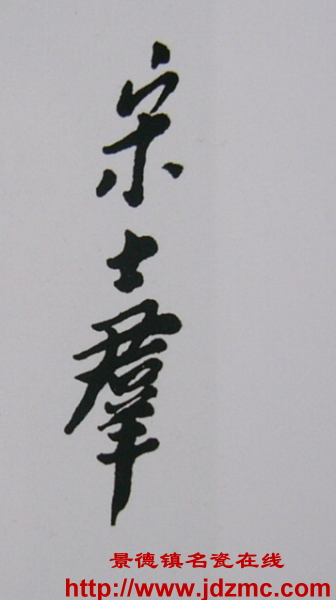 宋士羣
景德镇名瓷在线
http://www.jdzmc.com